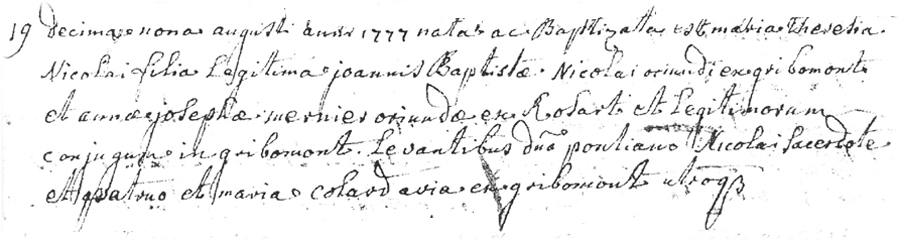 19 decima nona augusti anni 1777 nata ac Baptizata est maria Theresia
Nicolai filia Legitima joannis Baptistæ Nicolai oriundi ex gribomont
et annæ josephæ mernier oriundæ ex Rosart et Legitimorum
conjugum in gribomont. Levantibus dno pontiano Nicolai sacerdote
et patruo et maria colard avia ex gribomont utroq3